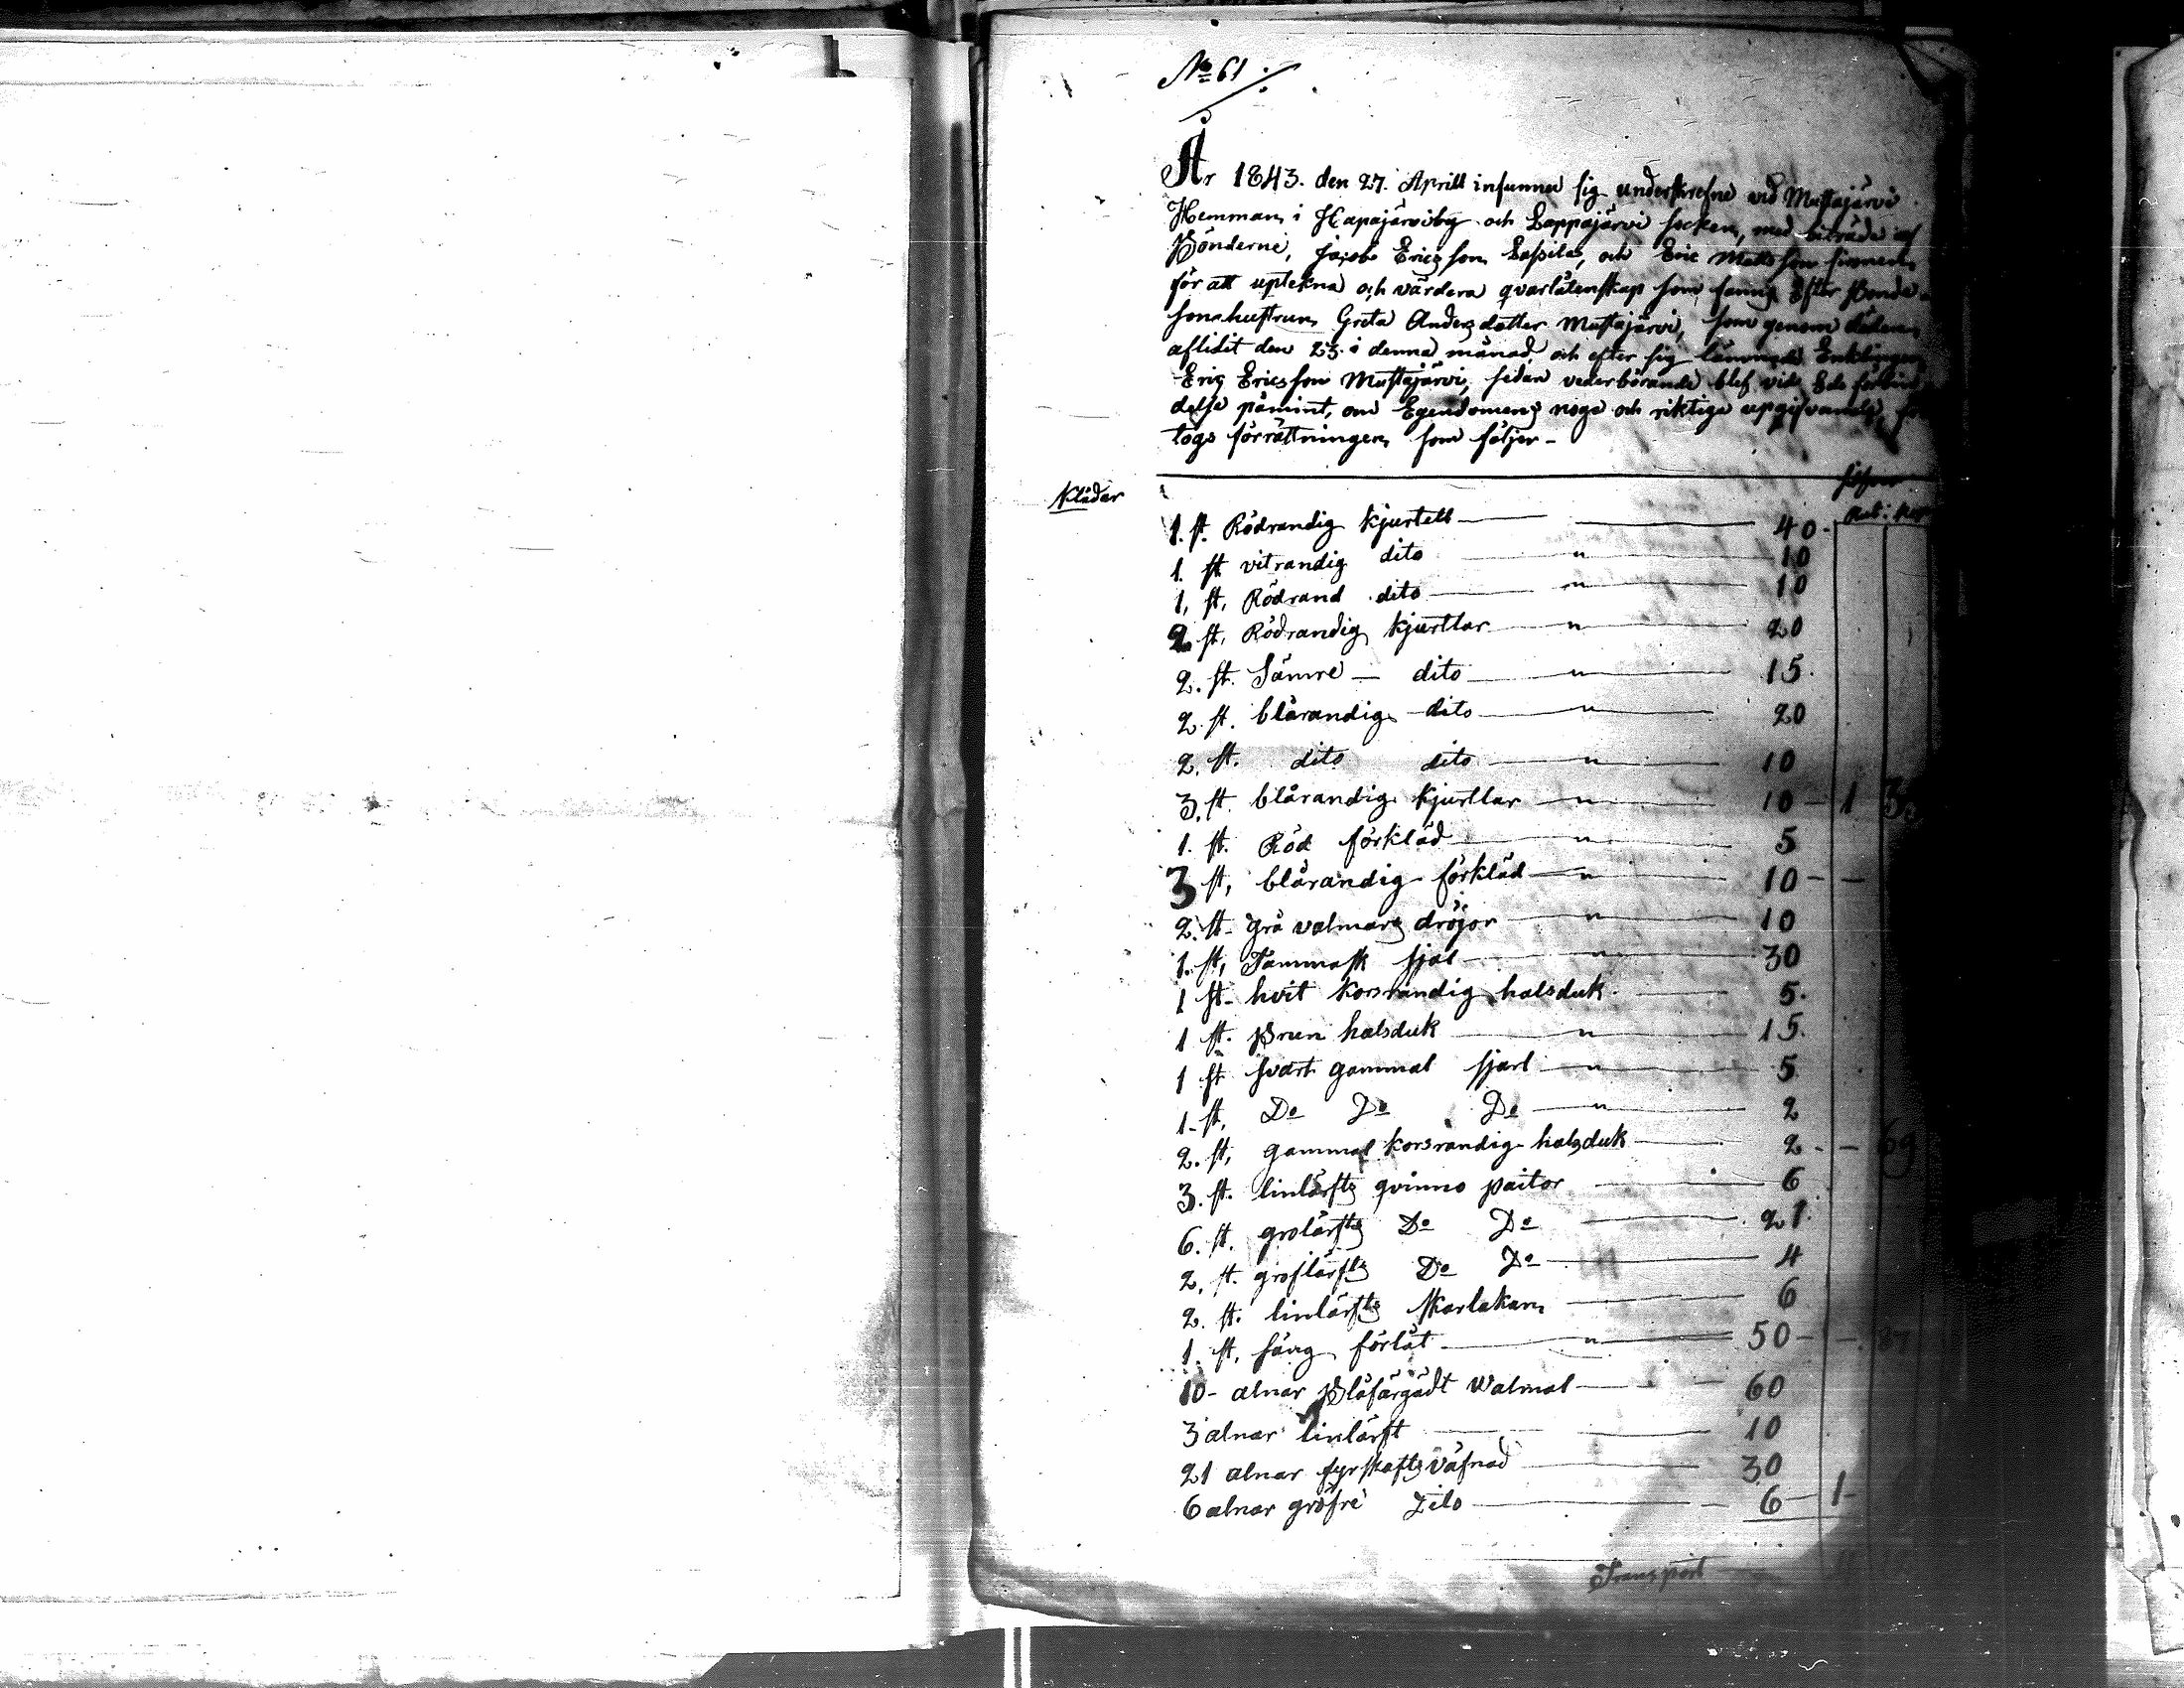 № 61.
År 1843. den 27. Aprill infunno sig underskrefne vid Mustajärvi
Hemman i Kapajärviby och Lappajärvi socken, med biträde af
Bönderne, Jacob Ericsson Lassila, och Eric Mattsson
för att uptekna och värdera qvarlåtenskap som fanns Efter Bonde-
sonshustrun Greta Andersdotter Mustajärvi, som genom döden
aflidit den 23. i denna månad och efter sig lämnade Enklingen
Eric Ericsson Mustajärvi, sedan vederbörande blef vid Eds förbin
delse påmint, om Egendomens noga och riktiga upgifvande, fö
togs förrättningen som följer-
Silfver
Klädar
Rub: Kop
1. st. Rödrandig kjurtell 40-
1. st vitrandig dito " 10
1, st, Rödrand dito " 10
2 st, Rödrandig kjurtlar " 20
2. st. Sämre - dito " 15.
2. st. blårandig dito " 20
2. st. dito dito " 10
3. st. blårandig kjurtlar " 10 - 1 35
1. st. Röd förkläd " 5
3 st, blårandig förkläd " 10 - -
2. st- grå valmars dröjor " 10
1. st, Tammask sjal " 30
1 st- hvit korsrandig halsduk 5.
1 st. Brun halsduk " 15.
1 st svart gammal sjarl " 5
1- st, Do Do Do " 2
2. st, gammal korsrandig halsduk 2 - - 69
3. st. linlärfts qvinno paitor 6
6. st. grolärfts Do Do 21.
2. st. groflärfts Do Do 4
2. st. linlärfts skarlakan 6
1. st, säng förlåt " 50 - - 87
10- alnar Blåfärgadt Walmal 60
3 alnar linlärft 10
21 alnar fyrskafts väfnad 30
6 alnar gröfre Dito 6 - 1-
Transport